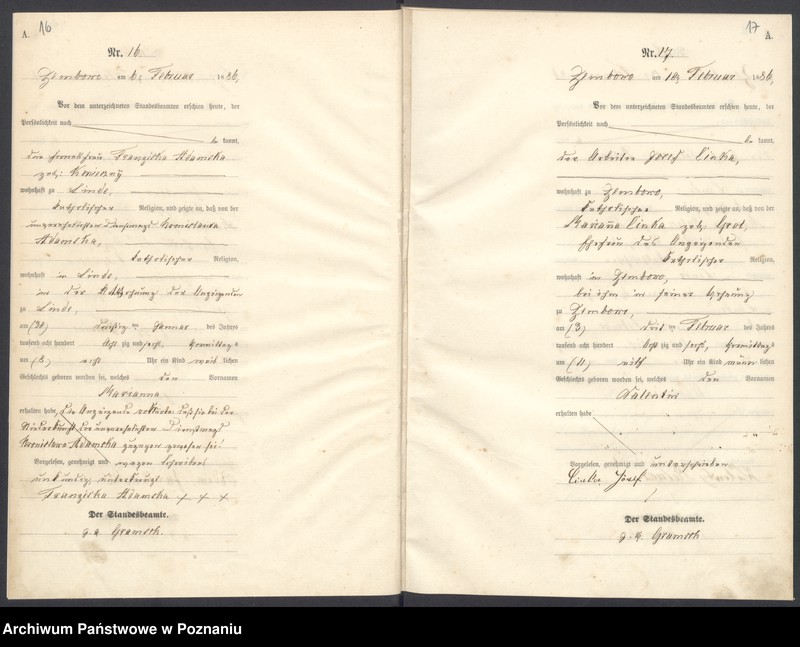 A. 16
Nr. 16
Zembowo am 6. Februar 1886,
Vor dem unterzeichneten Standesbeamten erschien heute, der
Persönlichkeit nach
be kannt,
die Franziska Adamska
geb.
wohnhaft zu Linde,
katholischer Religion, und zeigte an, daß von der
unverehelichten Dienstmagd Bronislawa
Adamska,
katholischer Religion,
wohnhaft in Linde,
in der Wohnung der Anzeigenden
zu Linde,
am (30) dreißig ten Januar des Jahres
tausend acht hundert acht zig und sechs, Vormittags
um (8) acht Uhr ein Kind weib lichen
Geschlechts geboren worden sei, welches den Vornamen
Marianna
erhalten habe, die Anzeigende erklärte daß sie bei der
Niederkunft der unverehelichten Dienstmagd
Bronislawa Adamska zugegen gewesen sei!
Vorgelesen, genehmigt und wegen Schreibens
unkundig unterkreuzt
Franziska Adamska + + +
Der Standesbeamte.
Gramsch.
17 A.
Nr. 17.
Zembowo am Februar 1886,
Vor dem unterzeichneten Standesbeamten erschien heute, der
Persönlichkeit nach
be kannt,
der Arbeiter Josef Cinka,
wohnhaft zu Zembowo,
katholischer Religion, und zeigte an, daß von der
Marianna Cinka geb.
Ehefrau des Anzeigenden
katholischer Religion,
wohnhaft in Zembowo,
bei ihm in seiner Wohnung
zu Zembowo,
am (3) drei ten Februar des Jahres
tausend acht hundert acht zig und sechs, Vormittags
um (11) elf Uhr ein Kind männ lichen
Geschlechts geboren worden sei, welches den Vornamen
Valentin
erhalten habe
Vorgelesen, genehmigt und unterschrieben
Cinka Josef
Der Standesbeamte.
Gramsch
Archiwum Państwowe w Poznaniu